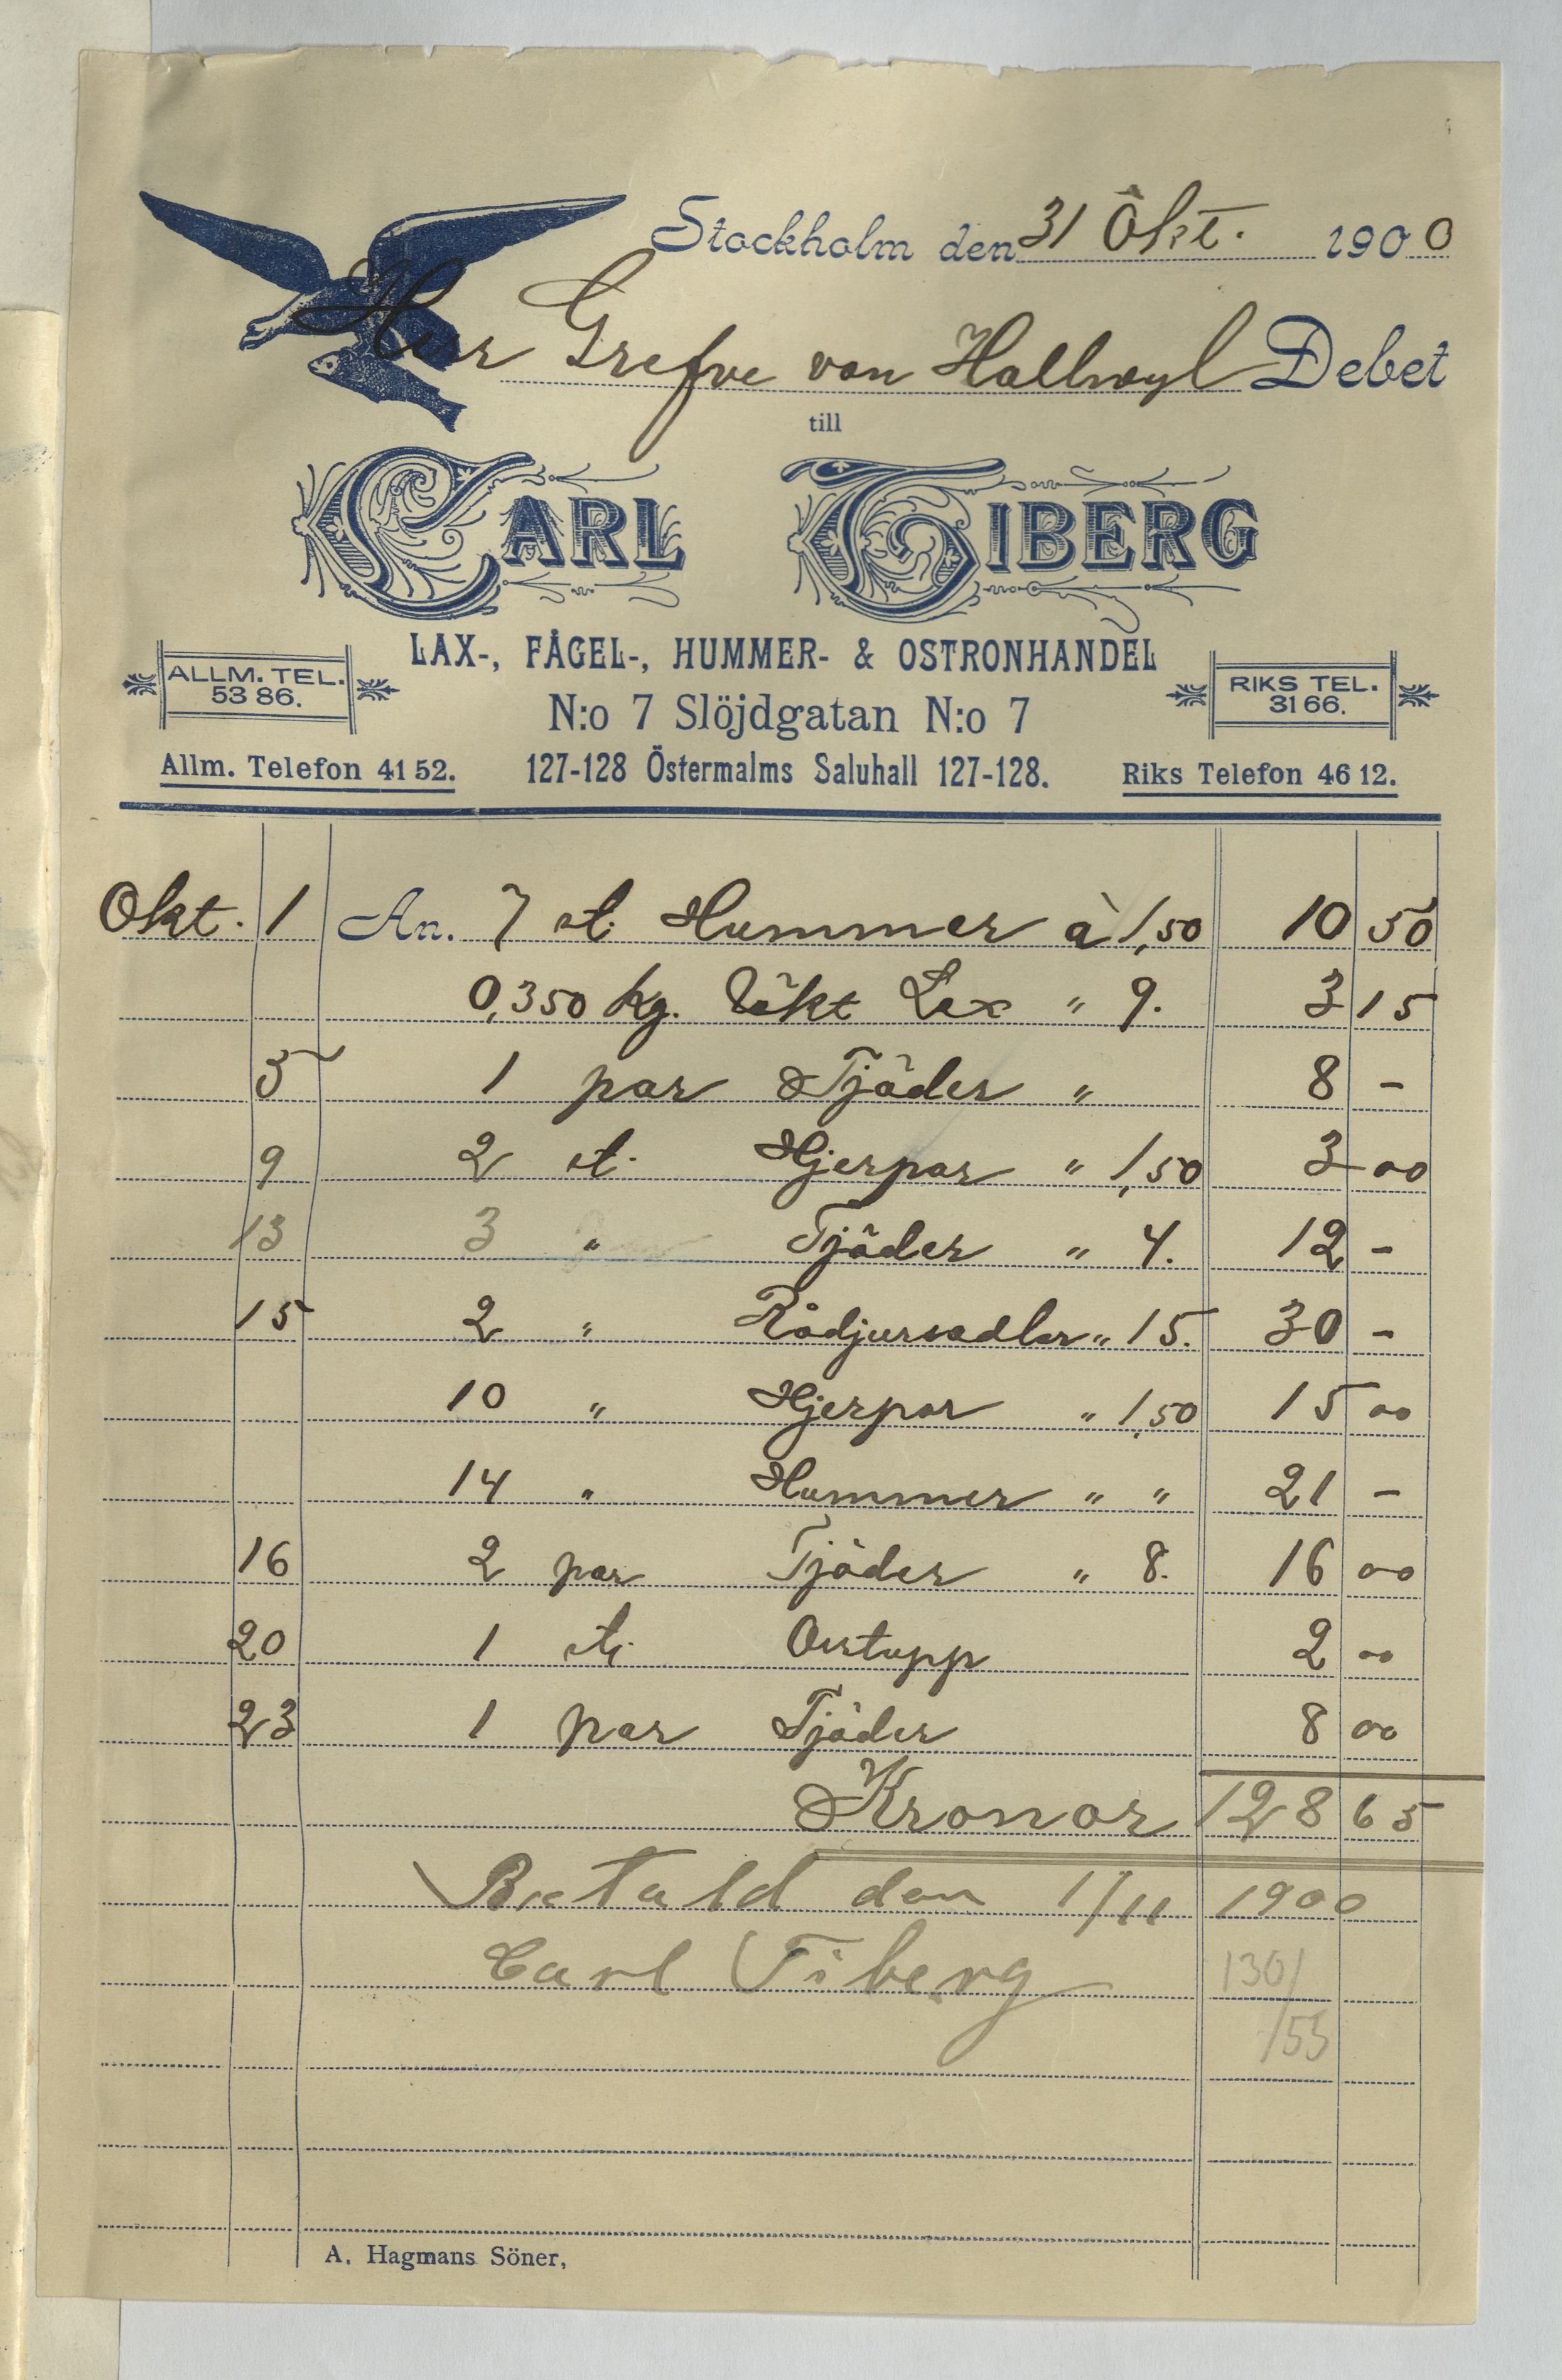 Stockholm den 31 Okt. 1900
Herr Grefve von Hallwyl Debet
till
CARL TIBERG
LAX-, FÅGEL-, HUMMER- & OSTRONHANDEL
ALLM. TEL. 53 86.
N:o 7 Slöjdgatan N:o 7
RIKS TEL. 31 66.
Allm. Telefon 41 52. 127-128 Östermalms Saluhall 127-128. Riks Telefon 46 12.
Okt. 1 An. 7 st. Hummer à 1,50 10 50
0,350 kg. Rökt Lax " 9. 3 15
5 1 par Tjäder " 8 -
9 2 st. Hjerpar " 1,50 3 00
13 3 " Tjäder " 4. 12 -
15 2 " Rådjursadlar " 15. 30 -
10 " Hjerpar " 1,50 15 00
14 " Hummer " " 21 -
16 2 par Tjäder " 8. 16 00
20 1 st. Orrtupp 2 00
23 1 par Tjäder 8 00
Kronor 128 65
Betald den 1/11 1900
Carl Tiberg
130/
/55
A. Hagmans Söner,